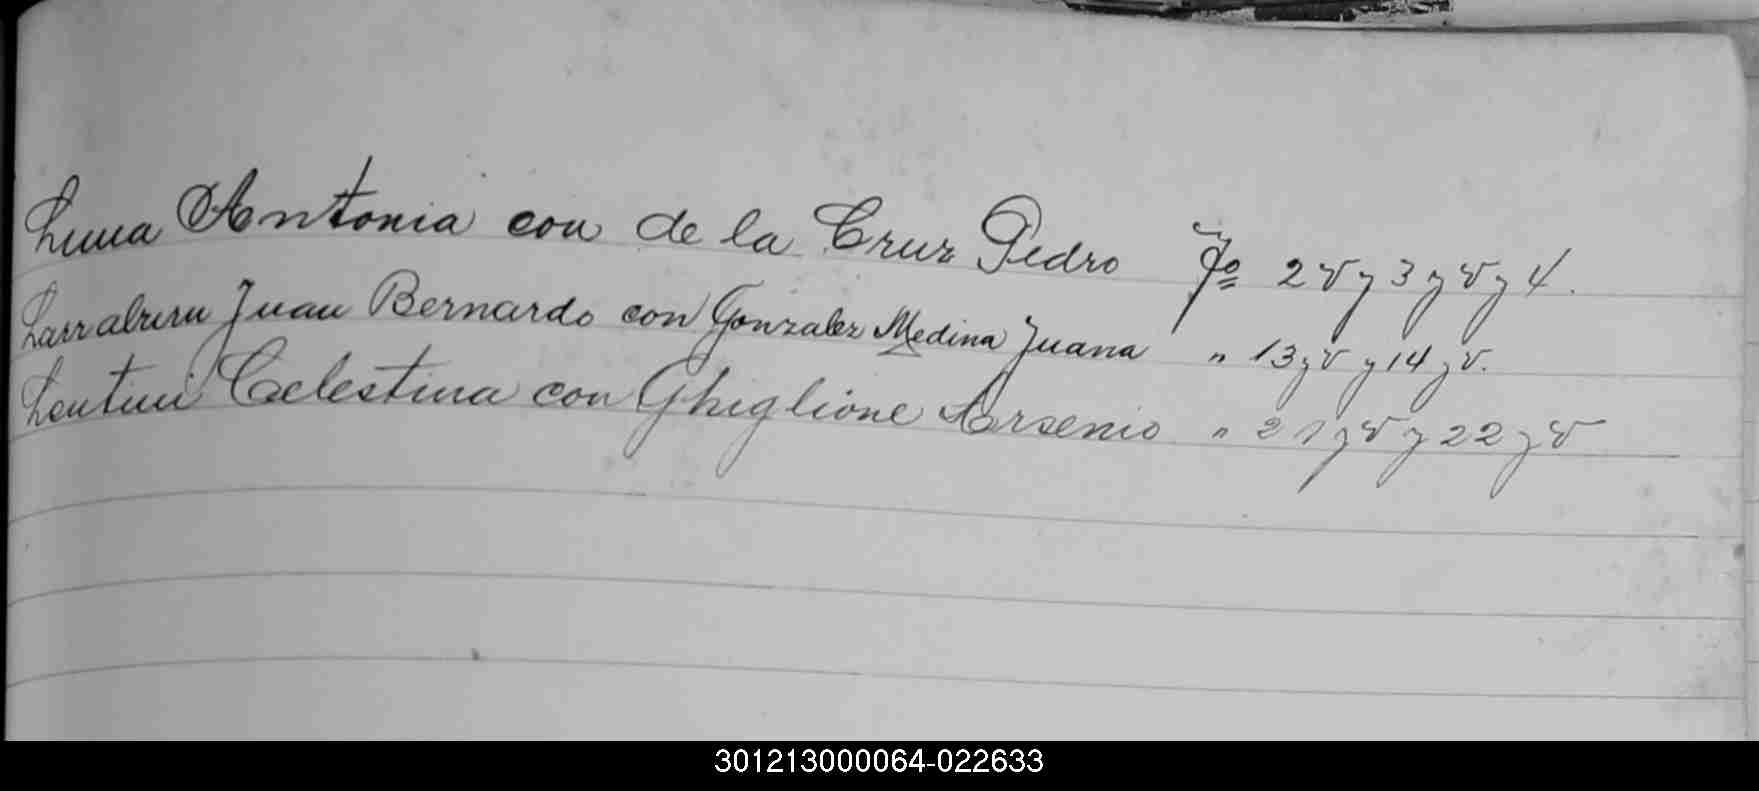 Luna Antonia con de la Cruz Pedro Fº 2 v y 3 y v y 4.
Larraburu Juan Bernardo con Gonzalez Medina Juana " 13 y v y 14 y v.
Lentini Celestina con Ghiglione Arsenio " 21 y v y 22 y v
301213000064-022633